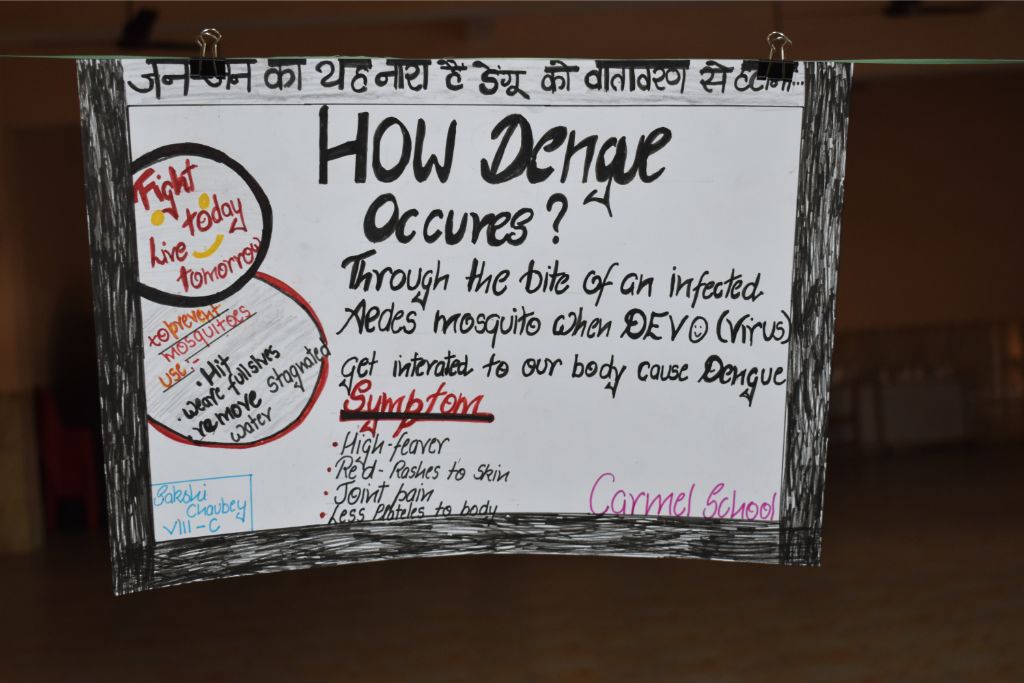 जन-जन का यह नारा है डेंगू को वातावरण से हटाना...
HOW Dengue
Occures?
Fight
today
Live
tomorrow
Through the bite of an infected
Aedes mosquito when DEVO (Virus)
get interated to our body cause Dengue
to prevent
mosquitoes
use:-
• Hit
• weare full slives
• remove stagnated
water
Symptom
• High-feaver
• Red-Rashes to skin
• Joint pain
• Less Plateles to body
Sakshi
Chaubey
VIII-C
Carmel School